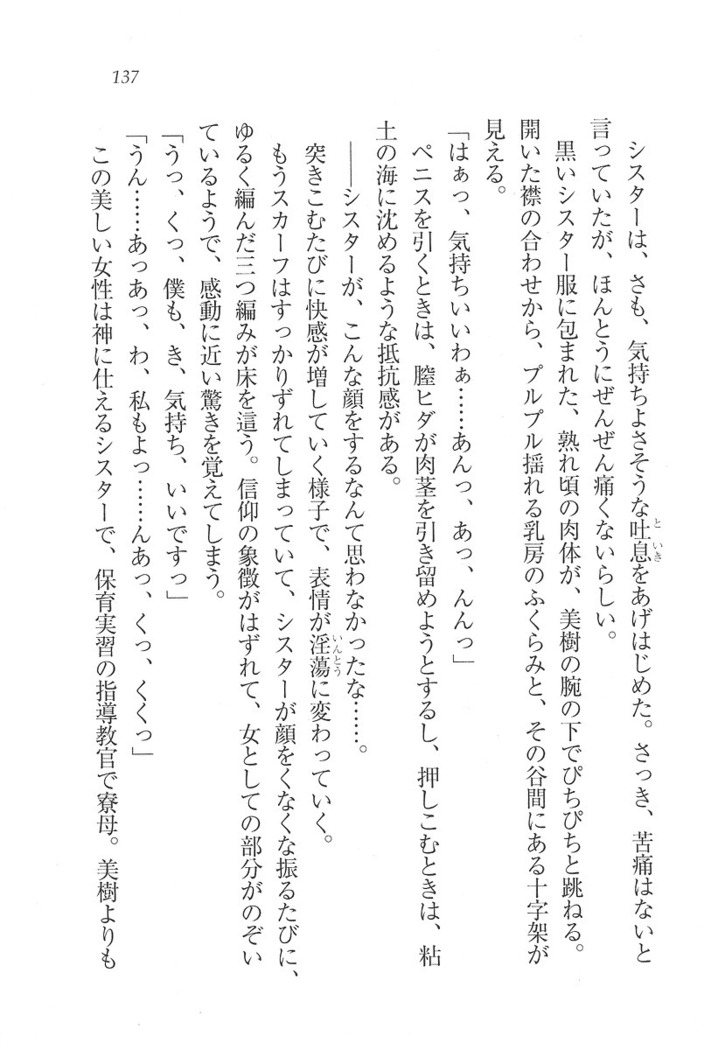 137
シスターは、さも、気持ちよさそうな吐息をあげはじめた。さっき、苦痛はないと
言っていたが、ほんとうにぜんぜん痛くないらしい。
黒いシスター服に包まれた、熟れ頃の肉体が、美樹の腕の下でぴちぴちと跳ねる。
開いた襟の合わせから、プルプル揺れる乳房のふくらみと、その谷間にある十字架が
見える。
「はぁっ、気持ちいいわぁ……あんっ、あっ、んんっ」
ペニスを引くときは、膣ヒダが肉茎を引き留めようとするし、押しこむときは、粘
土の海に沈めるような抵抗感がある。
――シスターが、こんな顔をするなんて思わなかったな……。
突きこむたびに快感が増していく様子で、表情が淫蕩に変わっていく。
もうスカーフはすっかりずれてしまっていて、シスターが顔をくなくな振るたびに、
ゆるく編んだ三つ編みが床を這う。信仰の象徴がはずれて、女としての部分がのぞい
ているようで、感動に近い驚きを覚えてしまう。
「うっ、くっ、僕も、き、気持ち、いいですっ」
「うん……あっあっ、わ、私もよっ……んあっ、くっ、くくっ」
この美しい女性は神に仕えるシスターで、保育実習の指導教官で寮母。美樹よりも